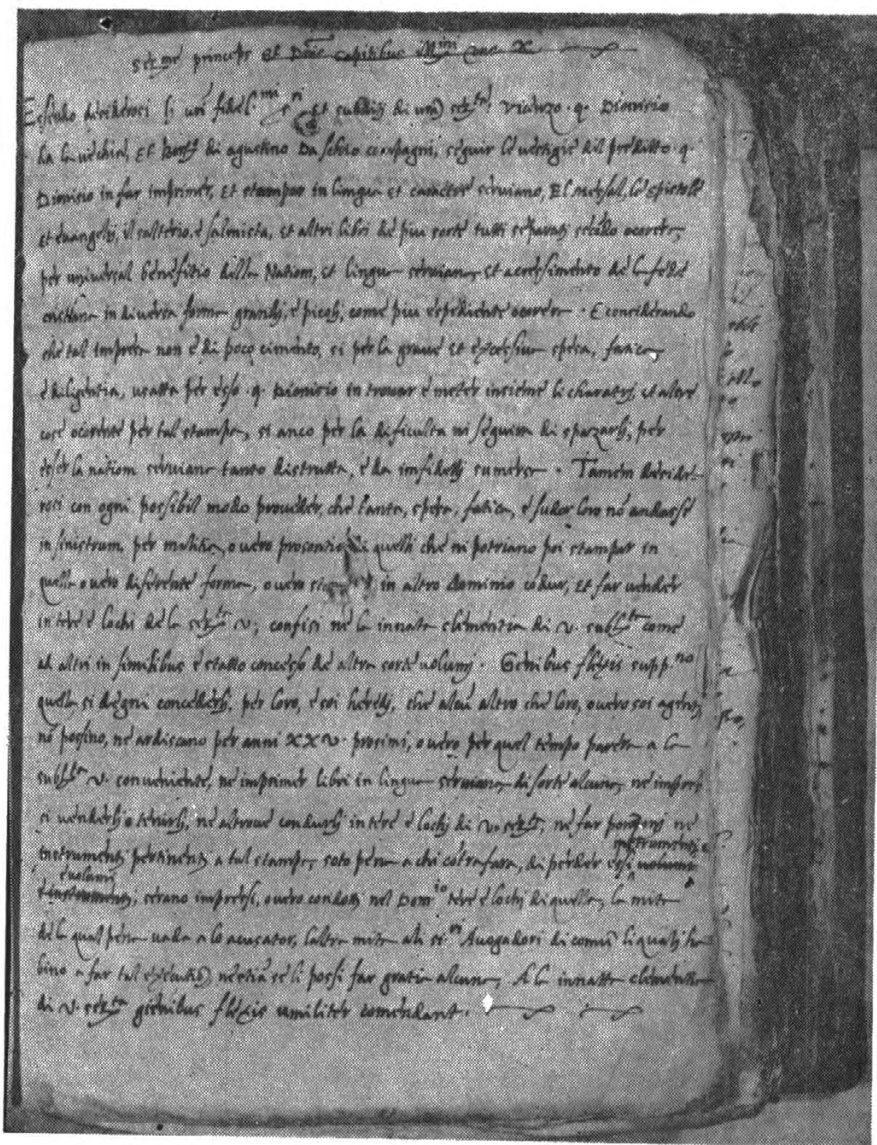 Ser.me princeps et Dne capitibus Ill.mi Cons. X
Essendo desiderosi li vri fidel.mi s.ri et subditi di vra ser.ta Vicenzo q. Dionisio
Da la vechia, Et di agustino Da compagni, seguir le vestigie dil preditto q.
Dionisio in far imprimer, et stampar in lingua et carattere serviano, El messal, le Epistole
et evangelij, il salterio, e salmista, et altri libri de piu sorte tutti separati secōdo ocorer,
per universal benefitio della Nation, et lingua serviana, et acresimento de la fede
cristiana in diversa forma grandi, e picoli, come piu espediente ocorera. E considerando
che tal impresa non e di poco cimento, si per la grave et excessiva spesa, fatica,
e diligentia, usatta per esso q. Dionisio in trovar e meter insieme li charateri et altre
cose ocorente per tal stampa, si anco per la dificulta ni seguira di spazarli, per
esser la nation serviana tanto distrutta, e da infideli sumersa. Tamen deside-
rosi con ogni possibil modo proveder, che tanta, spesa, fatica, e sudor loro nō andasse
in sinistrum, per malitia, o vero prosontio di quelli che ni potriano poi stampar in
quella o vero diferente forma, o vero in altro dominio cōdur, et far vender
in tere e lochi de la ser.ta v; confisi ne la innata clementia di v. subl.ta come
ad altri in similibus e statto concesso de altra sorte volumi. Genibus flexis supp.no
quella si degni concederli, per loro, e soi heredi, che alcū altro che loro, o vero soi agenti
nō possino, ne ardiscano per anni XXV prosimi, o vero per quel tempo parera a la
subl.ta v. conveniente, ne imprimer libri in lingua serviana, di sorte alcuna, ne impressi
si venderli o tenirli, ne altrove condurli in tere e lochi di v. ser.ta, ne far ponzoni ne
instrumenti pertinenti a tal stampa, soto pena a chi cōtrafara, di perder essi instrumenti e volumi
e volumi e instrumenti; serano impressi, o vero condotti nel Dom.io tere e lochi di quella, la mita
de la qual pena vada a lo acusator, laltra mita ali si.ri Avogadori di comū li quali ha-
bino a far tal executiō, ne etiā se li possi far gratia alcuna, A la innatta clementia
di v. ser.ta genibus flexis umiliter comendant.